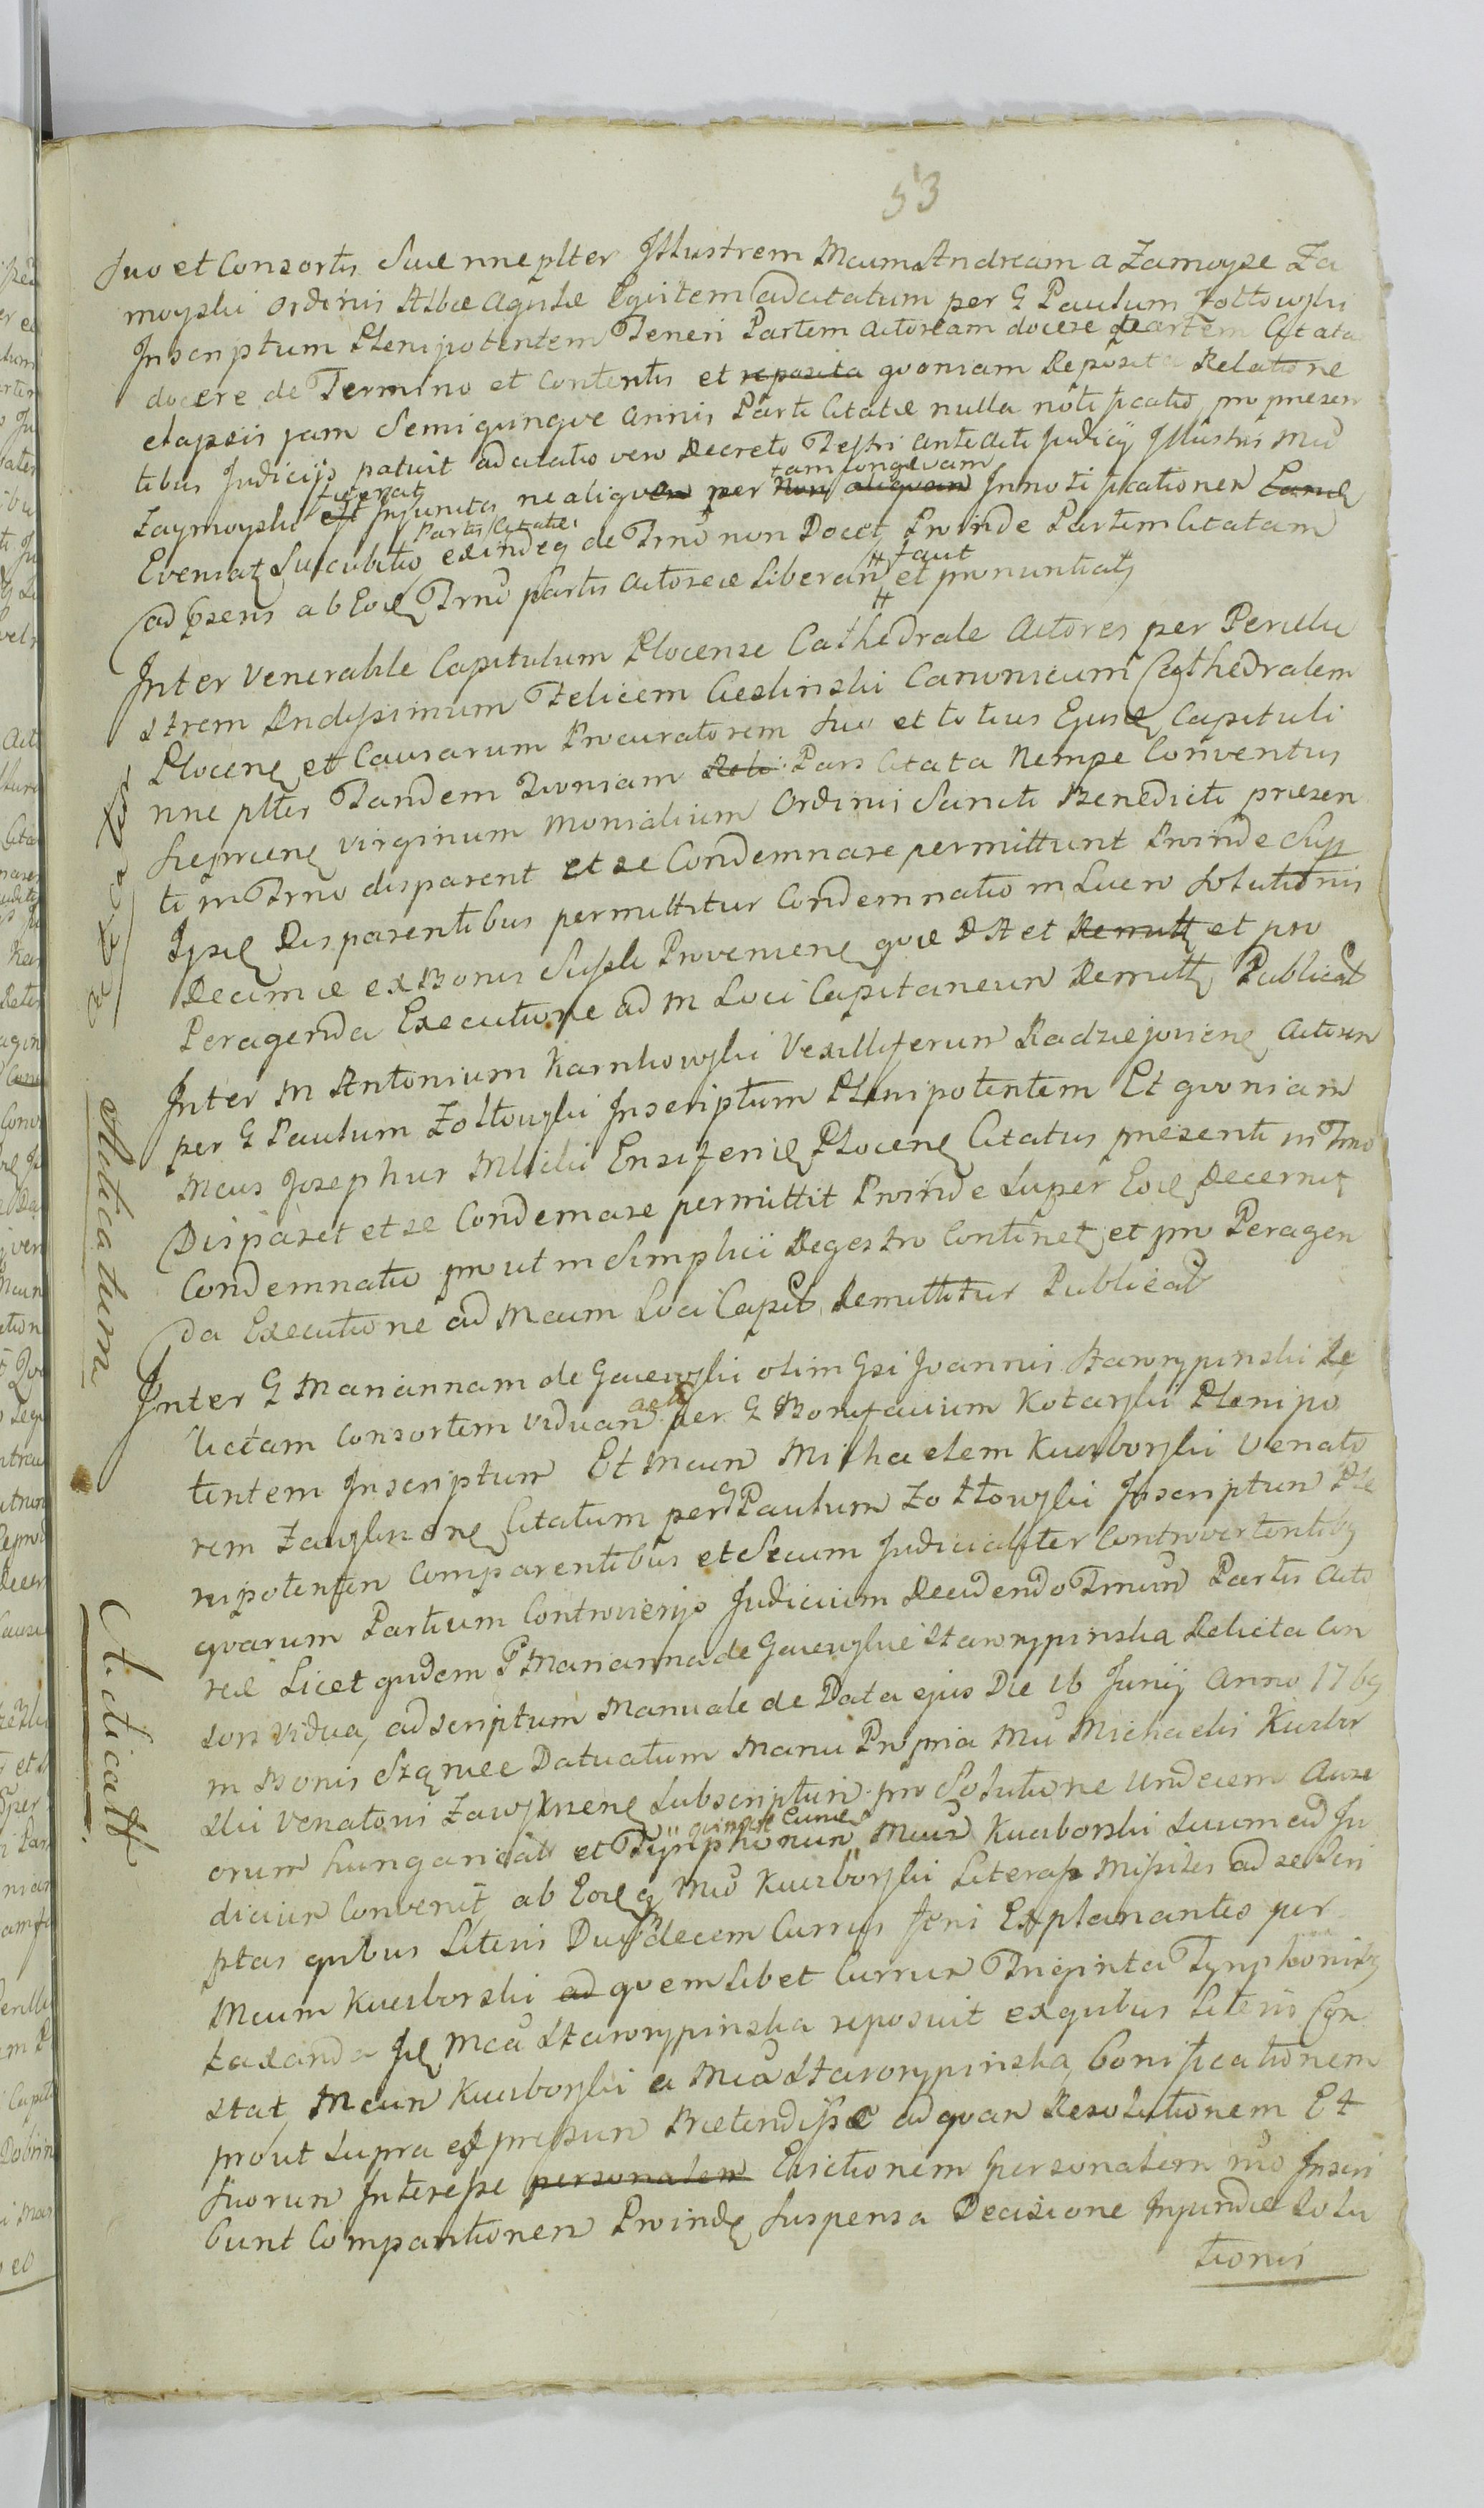 53
suo et Consortis Suæ nne plter Illustrem Mcum Andream a Zamoyse Za
moyski Ordinis Albæ Aquilæ Equitem adcitatum per G Paulum Zołtowski
Inscriptum Plenipotentem Teneri Partem Actoream docere Partem Citata
docere de Termino et Contentis et reposita quoniam Reposita Relatione
elapsis jam Semiqunque Annis Parti Citatæ nulla notificatio pro presen
tibus Judicijs patuit adcitatio vero Decreto Testri ante Acti Judicij Illustris Mci
Zaymoyski est fuerat Injuncta ne aliquem per Non aliquam tam longævam Innotificationem
Eveniat Sucubitio Partis Citatæ exindeq de Trno non Docet Proinde Partem Citatam
ad Psens ab Eod Trno Partis Actoreæ Liberan et faut pronuntiat
Inter Venerabile Capitulum Plocense Cathedrale Actores per Perillu
strem Rndissimum Felicem Cieslinski Canonicum Cathedralem
Plocens et Causarum Procuratorem Suo et totius Ejusd Capituli
nne plter Tandem Quoniam Pars Citata Nempe Conventus
Sieprcens Virginum Monialium Ordinis Sancti Benedicti præsen
ti in Trno disparent et se Condemnare permittunt Proinde Sup
Ipsis Disparentibus permittitur Condemnatio in Lucro Solutionis
Decimæ ex Bonis Proveniens quæ DAt et Remitt et pro
Peragenda Executione ad M Loci Capitaneum Remitt Publicat
Inter M Antonium Karnkowski Vexilliferum Radziejoviens Actorem
per G Paulum Zołtowski Inscriptum Plenipotentem Et quoniam
Mcus Josephus Mlicki Ensiferid Plocens Citatus presenti in Trno
Disparet et se Condemare permittit Proinde Super Eod Decernit
Condemnatio prout in Simplici Regestro Continet et pro Peragen
da Executione ad Mcum Loci Capit Remittitur Publicat
Inter G Mariannam de Gaiewski olim Gsi Joannis Starorypinski Re
lictam Consortem Viduam act per G Bonifacium Kotarski Plenipo
tentem Inscriptum Et Mcum Michaelem Kuczborski Venato
rem Zawskrzens Citatum per G Paulum Zołtowski Inscriptum Ple
nipotentem Comparentibus et Secum Judicialiter Controvertentibq
quarum Partium Controversijs Judicium Decidendo Trnum Partis Acto
reæ Licet quidem G Marianna de Gaiewskie Starorypinska Relicta Con
sors Vidua, adscriptum Manuale de Data ejus Die 16 Junij Anno 1769
in Bonis Datuatum Manu Propria Mci Michaelis Kuczbor
ski Venatoris Zawskrzens Subscriptum pro Solutione Undecim Aure
orum hungaricali et Tynphonum Mcum Kuczborski Suum ad Ju
dicium Convenit ab Eodq Mco Kuczborski Literas Missiles ad se Scri
ptas quibus Literis Duodecem Currus Feni Explanantes per
Mcum Kuczborski ad quemlibet Currum Triginta Tynphonibq
taxanda Mca Starorypinska reposuit ex quibus Literis Con
stat Mcum Kuczborski a Mca Starorypinska Bonificationem
prout Supra expressum Prætendisse ad quam Resolutionem Et
suorum Interesse personalem Evictionem personalem mo Inscri
bunt Comparitionem Proinde Suspensa Decisione Injundæ Solu
tionis
Zt Ca tis
Aducatum
Ct. dicatt.